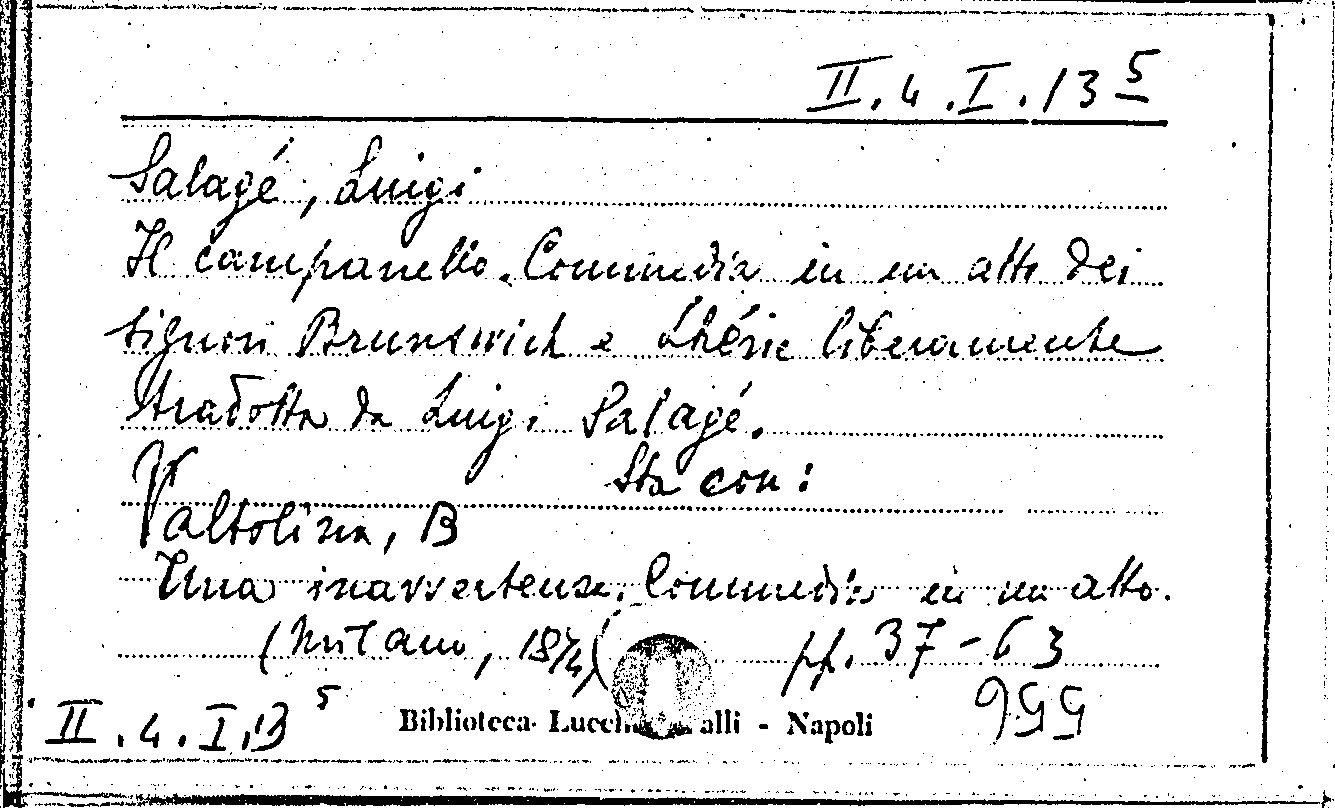 II. 4. I. 13 5
Salagé, Luigi
Il campanello. Commedia in un atto dei
signori Brunswich e Lhérie liberamente
tradotta da Luigi Salagé.
Sta con:
Valtolina, B
Una inavvertenza. Commedia in un atto.
(Milano, 1874( pp. 37-63
999
II. 4. I. 13 5
Biblioteca Lucch alli - Napoli